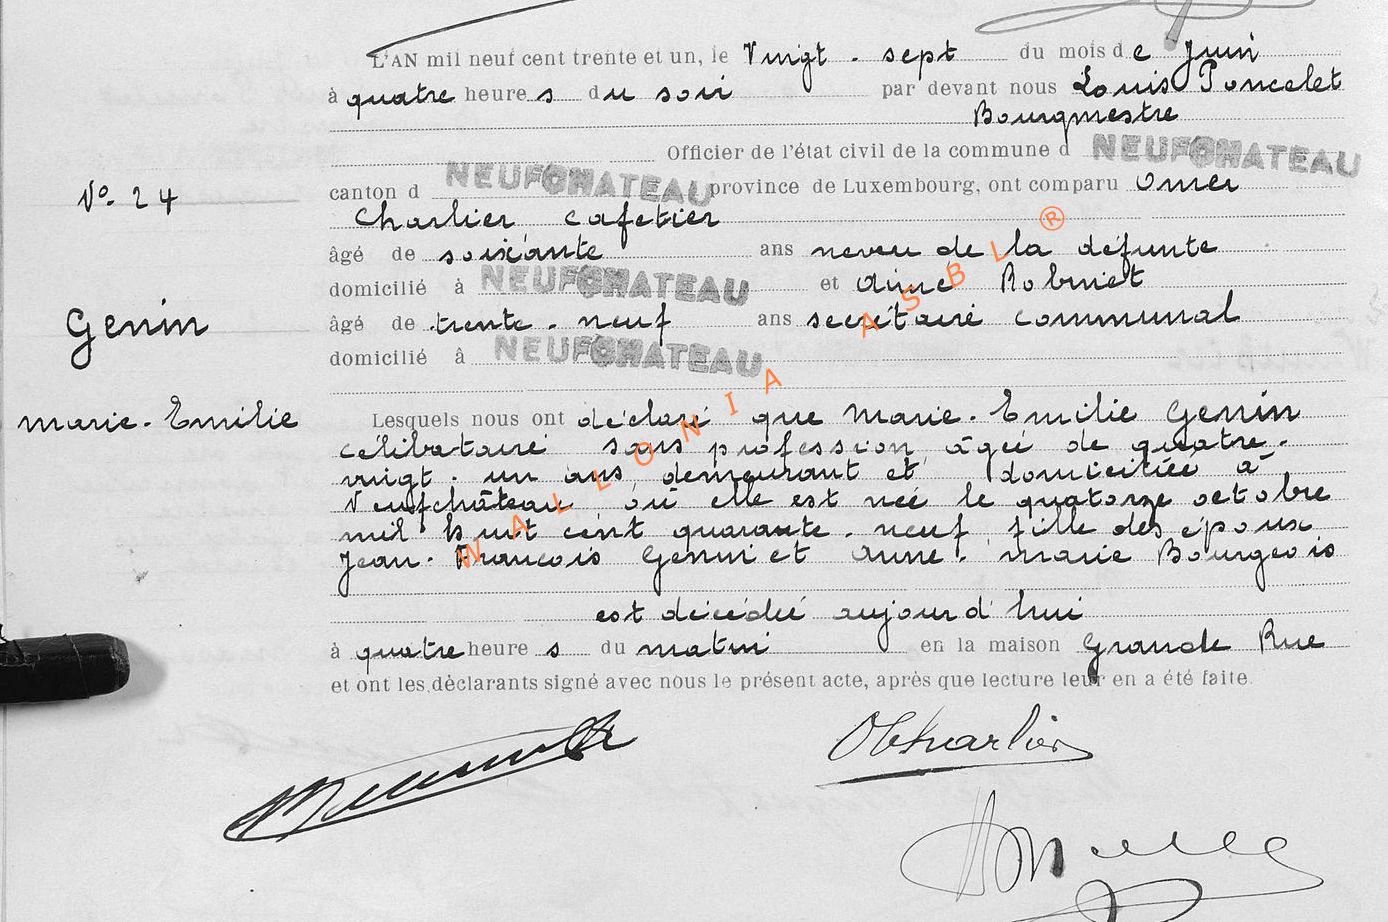 L'AN mil neuf cent trente et un, le Vingt - sept du mois de Juin
à quatre heures du soir par devant nous Louis Poncelet
Bourgmestre
Officier de l'état civil de la commune d NEUFCHATEAU
N° 24
canton d NEUFCHATEAU province de Luxembourg, ont comparu Omer
Charlier cafetier
âgé de soixante ans neveu de la défunte
domicilié à NEUFCHATEAU et Aimé Robinet
Genin
âgé de trente - neuf ans secrétaire communal
domicilié à NEUFCHATEAU
Marie - Emilie
Lesquels nous ont déclaré que Marie - Emilie Genin
célibataire sans profession, âgée de quatre -
vingt - un ans, demeurant et domiciliée à
Neufchâteau où elle est née le quatorze octobre
mil huit cent quarante - neuf fille des époux
Jean - François Genin et Anne - Marie Bourgeois
est décédée aujourd'hui
à quatre heures du matin en la maison Grande Rue
et ont les déclarants signé avec nous le présent acte, après que lecture leur en a été faite.
OCharlier
WALLONIA ASBL ®